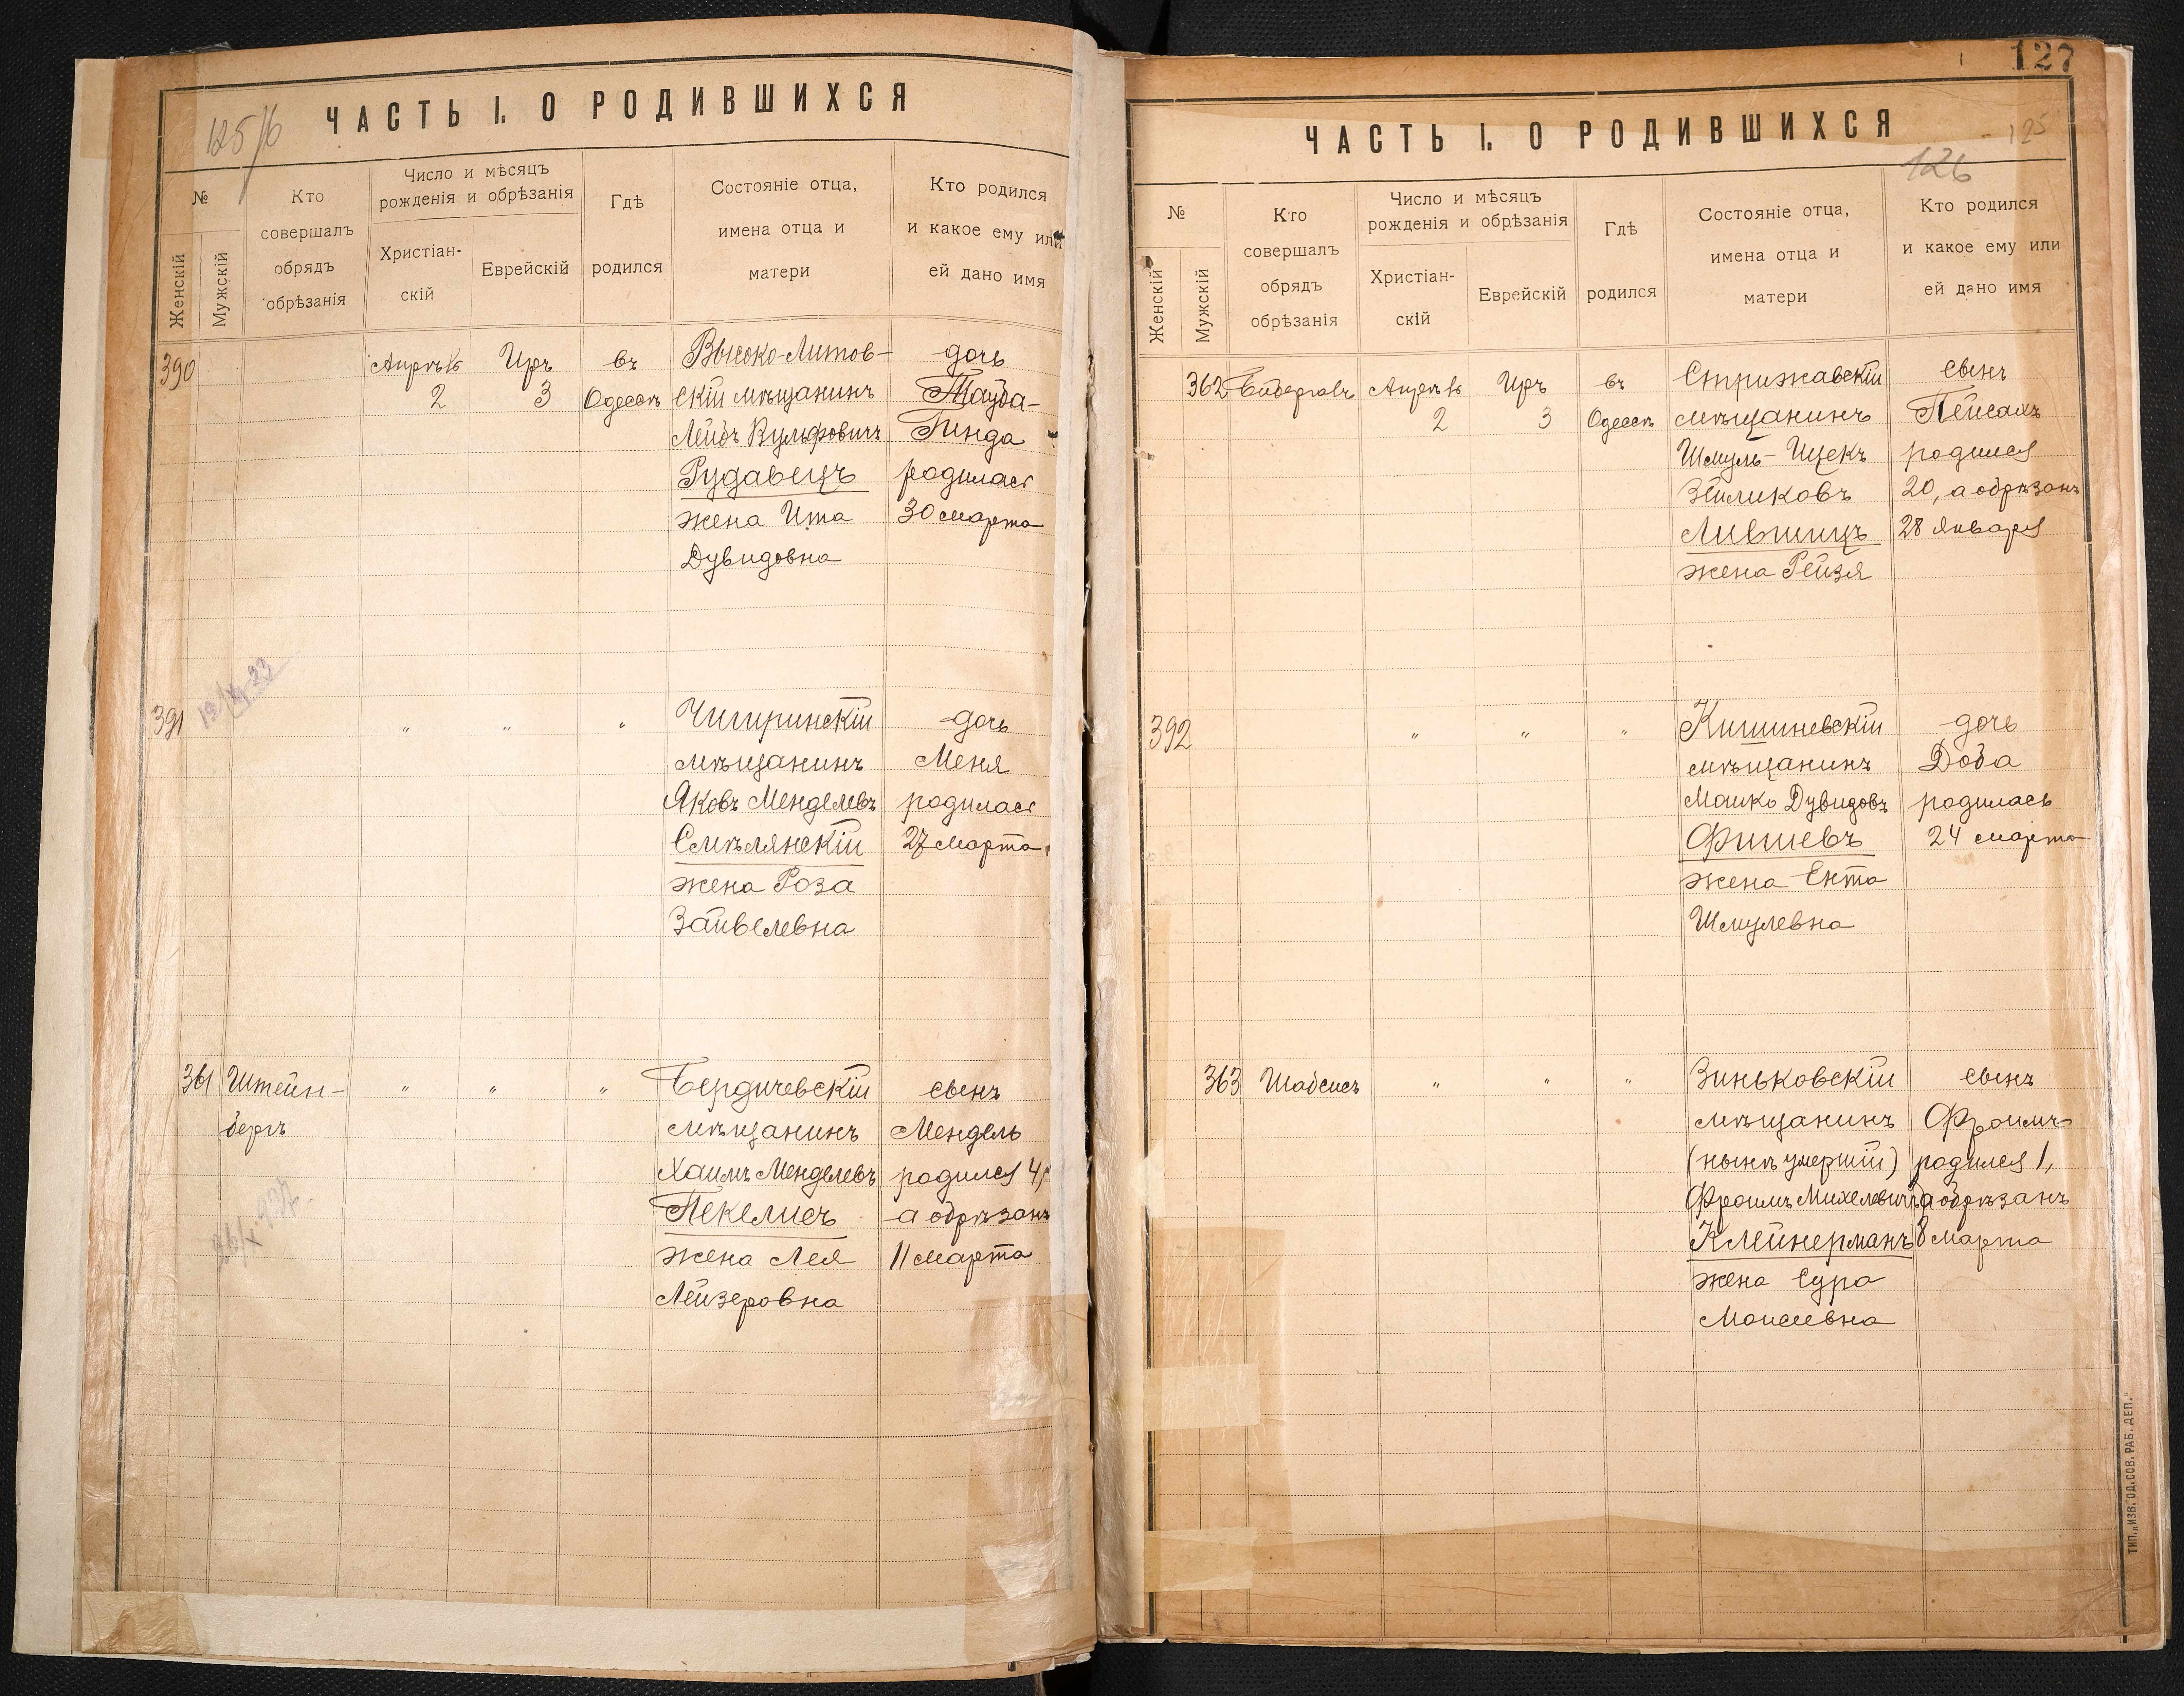 125/б
ЧАСТЬ I. О РОДИВШИХСЯ
№
Женскій
Мужскій
Кто
совершалъ
обрядъ
обрѣзанія
Число и мѣсяцъ
рожденія и обрѣзанія
Христіан-
скій
Еврейскій
Гдѣ
родился
Состояніе отца,
имена отца и
матери
Кто родился
и какое ему или
ей дано имя
390
Апрѣль
2
Иръ
3
въ
Одессѣ
Высоко-Литов-
скій мѣщанинъ
Лейбъ Вульфовичъ
Рудавецъ
жена Ита
Дувидовна
дочь
Тауба-
Гинда
родилась
30 марта
391
"
"
"
Чигиринскій
мѣщанинъ
Яковъ Менделевъ
Смѣлянскій
жена Роза
Зайвелевна
дочь
Меня
родилась
27 марта
361
Штейн-
бергъ
"
"
"
Бердичевскій
мѣщанинъ
Хаимъ Менделевъ
Пекелисъ
жена Лея
Лейзеровна
сынъ
Мендель
родился 4,
а обрѣзанъ
11 марта
127
125
126
ЧАСТЬ I. О РОДИВШИХСЯ
№
Женскій
Мужскій
Кто
совершалъ
обрядъ
обрѣзанія
Число и мѣсяцъ
рожденія и обрѣзанія
Христіан-
скій
Еврейскій
Гдѣ
родился
Состояніе отца,
имена отца и
матери
Кто родился
и какое ему или
ей дано имя
362
Апрѣль
2
Иръ
3
въ
Одессѣ
Стрижавскій
мѣщанинъ
Шмуль-Ицекъ
Зейликовъ
Лившицъ
жена Рейзя
сынъ
Пейсахъ
родился
20, а обрѣзанъ
28 января
392
"
"
"
Кишиневскій
мѣщанинъ
Манко Дувидовъ
Фишевъ
жена Ента
Шмулевна
дочь
Доба
родилась
24 марта
363
Шабсисъ
"
"
"
Зиньковскій
мѣщанинъ
(нынѣ умершій)
Фроимъ Михелевичъ
Клейнерманъ
жена Сура
Моисеевна
сынъ
Фроимъ
родился 1,
а обрѣзанъ
8 марта
ТИП. „ИЗВ. ОД. СОВ. РАБ. ДЕП."